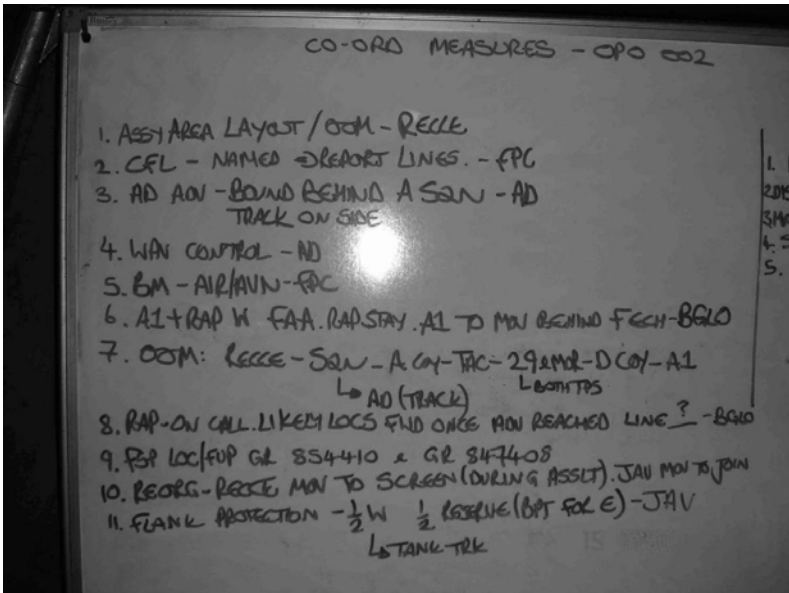 CO-ORD MEASURES - OPO 002
1. ASSY AREA LAYOUT / OOM - RECCE
2. CFL - NAMED → REPORT LINES. - FPC
3. AD ADV - BOUND BEHIND A SQN - AD
TRACK ON SIDE
4. WPN CONTROL - AD
5. BM - AIR/AVN - FPC
6. A1 + RAP W FAA. RAP STAY. A1 TO MOV BEHIND F ECH - BGLO
7. OOM: RECCE - SQN - A COY - TAC - 29 & MOR - D COY - A1
↳ AD (TRACK)
↳ BOTH TPS
8. RAP - ON CALL. LIKELY LOCS FWD ONCE ADV REACHED LINE ? - BGLO
9. FSP LOC/FUP GR 854410 & GR 847408
10. REORG - RECCE MOV TO SCREEN (DURING ASSLT). JAV MOV TO JOIN
11. FLANK PROTECTION - ½ W ½ RESERVE (BPT FOR E) - JAV
↳ TANK TRK
1.
3.
4. S
5.